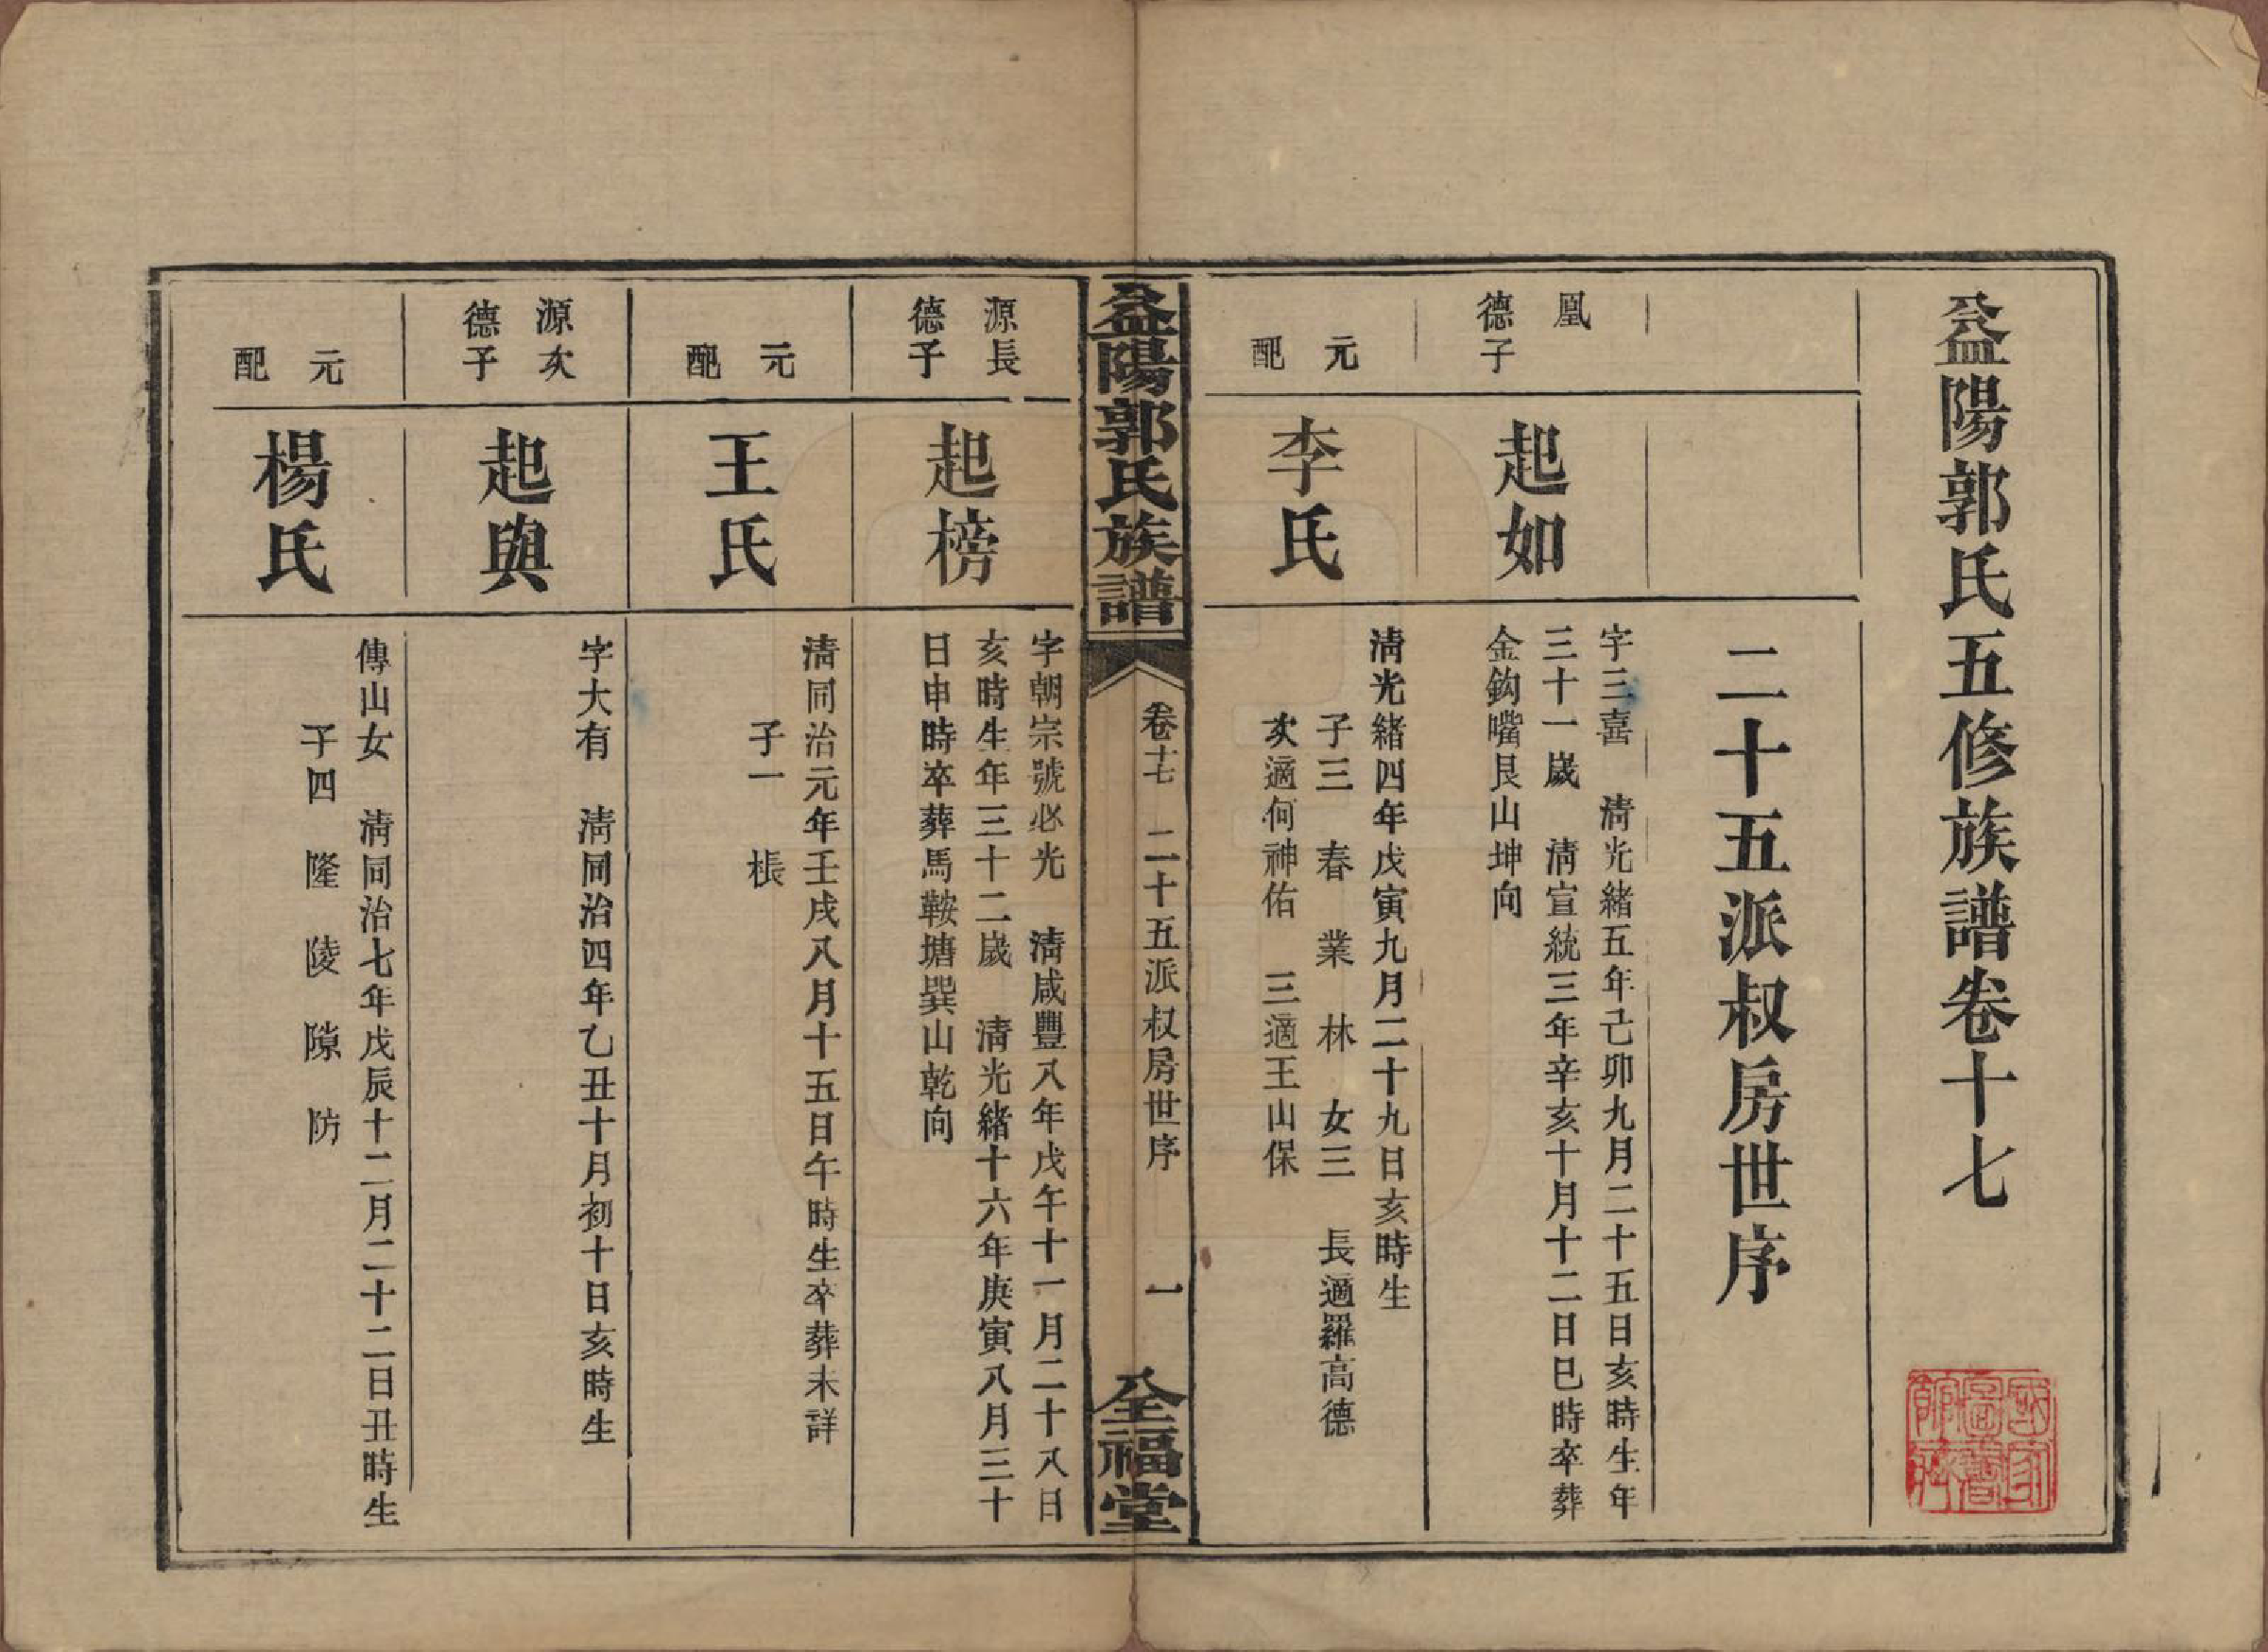 益陽郭氏五修族譜卷十七
二十五派叔房世序
凰
德子
起如
字三喜　清光緒五年己卯九月二十五日亥時生年
三十一歲　清宣統三年辛亥十月十二日巳時卒葬
金鈎嘴艮山坤向
元
配
李氏
清光緒四年戊寅九月二十九日亥時生
子三　春　業　林　女三　長適羅高德
次適何神佑　三適王山保
益陽郭氏族譜
卷十七　二十五派叔房世序　一
全福堂
源長
德子
起榜
字朝宗號必光　清咸豐八年戊午十一月二十八日
亥時生年三十二歲　清光緒十六年庚寅八月三十
日申時卒葬馬鞍塘巽山乾向
元
配
王氏
清同治元年壬戌八月十五日午時生卒葬未詳
子一　棖
源次
德子
起與
字大有　清同治四年乙丑十月初十日亥時生
元
配
楊氏
傳山女　清同治七年戊辰十二月二十二日丑時生
子四　隆　陵　隙　防
國家
圖書
館藏